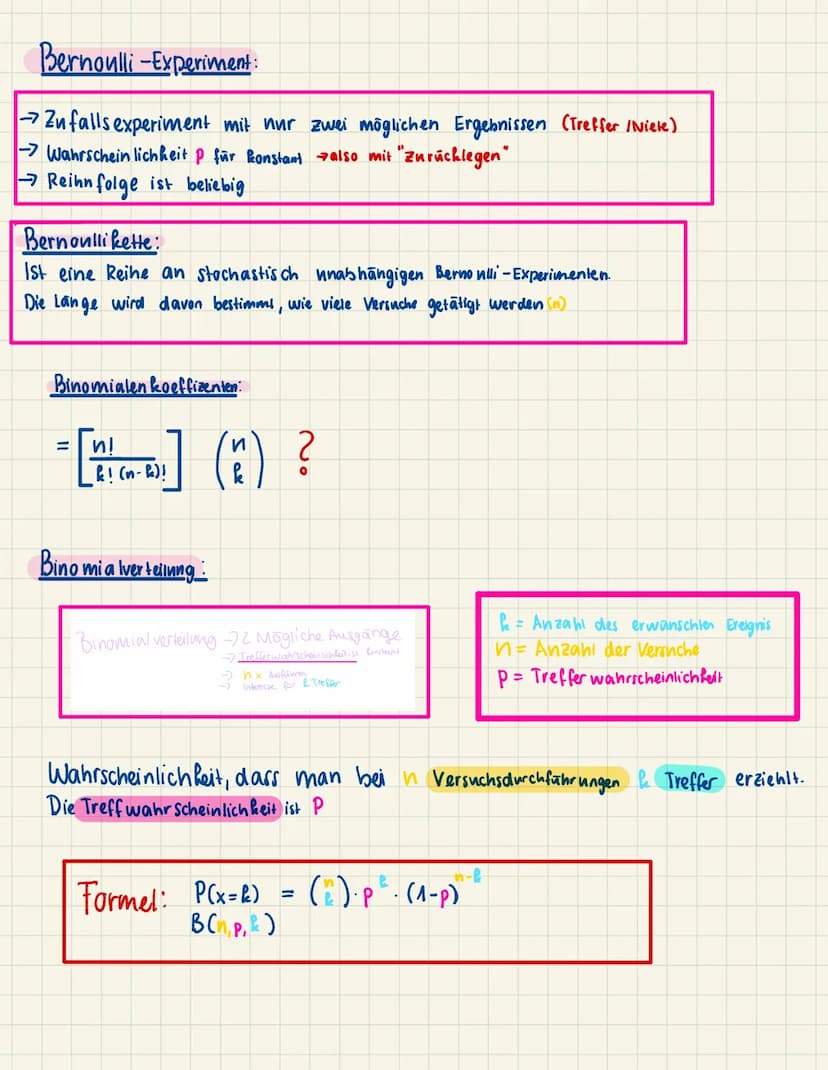 Bernoulli-Experiment:
→ Zufallsexperiment mit nur zwei möglichen Ergebnissen (Treffer / Niete)
→ Wahrscheinlichkeit p für konstant → also mit "zurücklegen"
→ Reihnfolge ist beliebig
Bernoullikette:
Ist eine Reihe an stochastisch unabhängigen Bernoulli-Experimenten.
Die Länge wird davon bestimmt, wie viele Versuche getätigt werden (n)
Binomialenkoeffizenten:
= [n! / k! (n-k)!] (n k) ?
Binomialverteilung:
Binomialverteilung → 2 Mögliche Ausgänge
→ Trefferwahrscheinlichkeit ist konstant
→ n x Ausführen
→ Interesse für k Treffer
k = Anzahl des erwünschten Ereignis
n = Anzahl der Versuche
p = Trefferwahrscheinlichkeit
Wahrscheinlichkeit, dass man bei n Versuchsdurchführungen k Treffer erziehlt.
Die Treffwahrscheinlichkeit ist p
Formel: P(x=k) = (n k) · p^k · (1-p)^n-k
B(n,p,k)